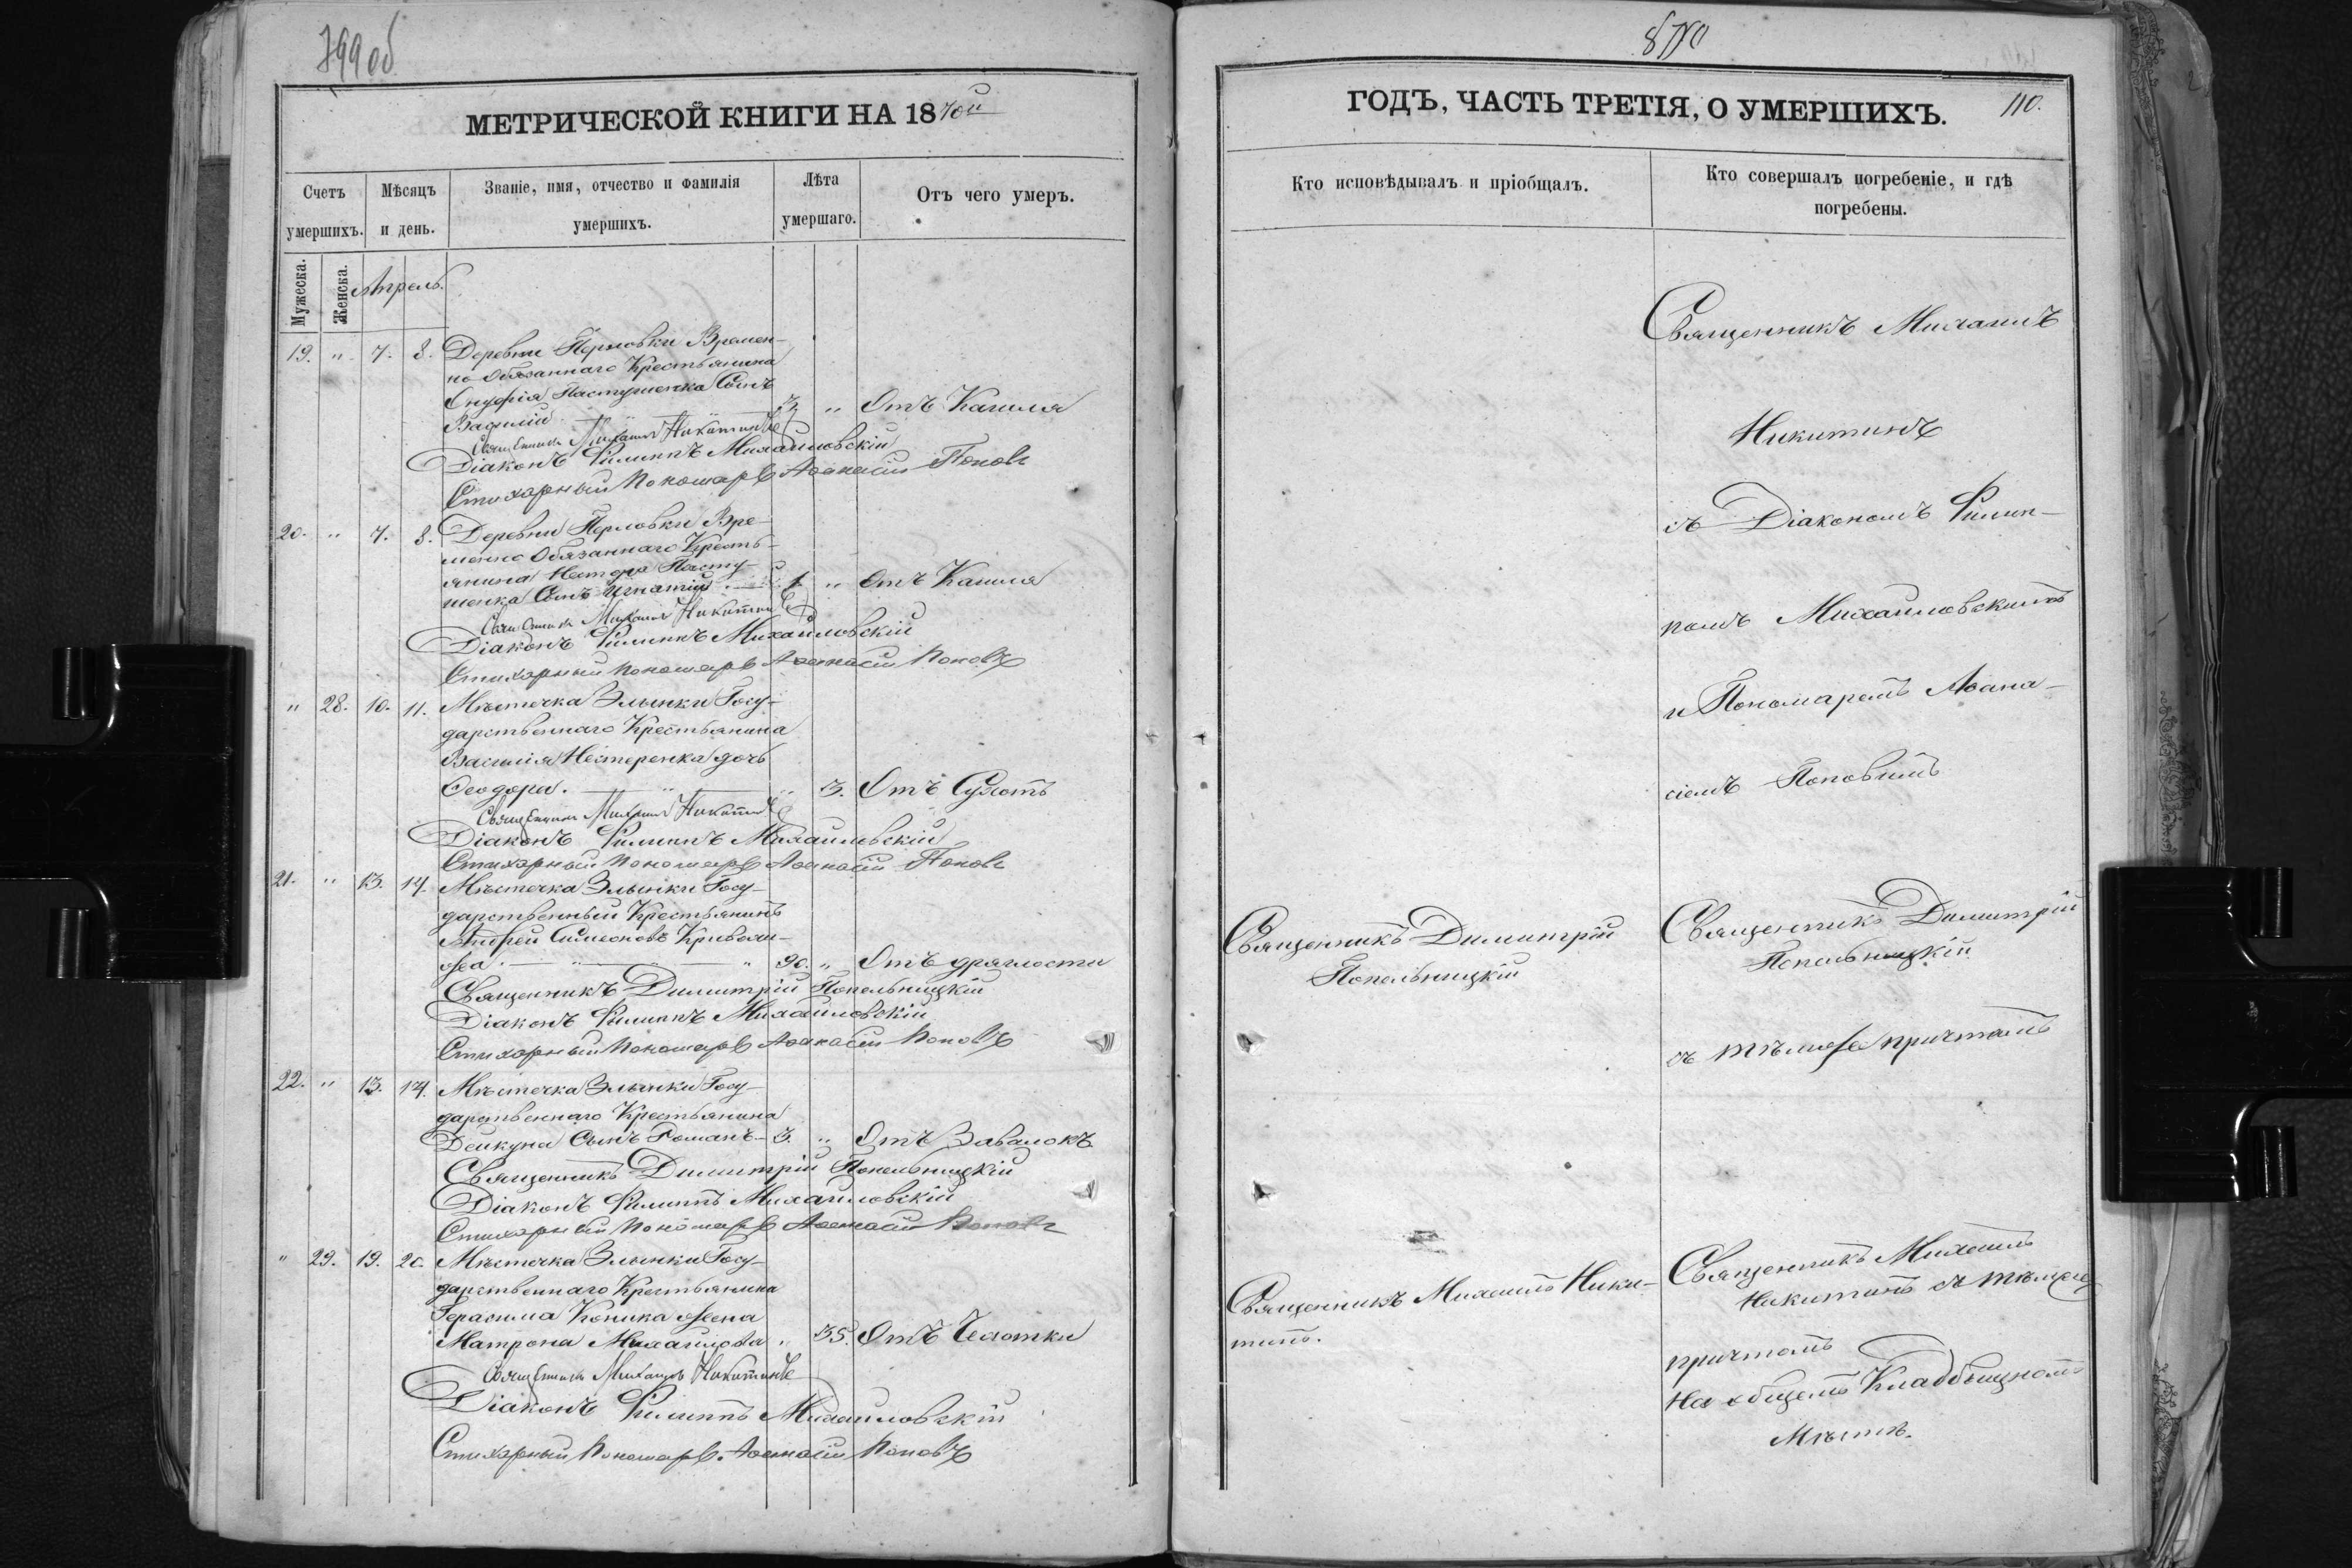 799 об
МЕТРИЧЕСКОЙ КНИГИ НА 1870й
Счетъ умершихъ.
Мѣсяцъ и день.
Званіе, имя, отчество и фамилія умершихъ.
Лѣта умершаго.
Отъ чего умеръ.
Мужеска.
Женска.
Апрель.
19. " 7. 8. Деревни Перловки Времен-
но Обязаннаго Крестьянина
Онуфрія Пастушенка Сынъ
Василій 3 " Отъ Кашля
Священникъ Михаилъ Никитинъ
Діаконъ Филиппъ Михайловскій
Стихарный Пономарь Аѳанасій Поповъ
20. " 7. 8. Деревни Перловки Вре-
менно Обязаннаго Кресть-
янина Нестора Пасту-
шенка Сынъ Игнатій 1 " Отъ Кашля
Священникъ Михаилъ Никитинъ
Діаконъ Филиппъ Михайловскій
Стихарный Пономарь Аѳанасій Поповъ
" 28. 10. 11. Мѣстечка Злынки Госу-
дарственнаго Крестьянина
Василія Нестеренка дочь
Ѳеодора. " 3. Отъ Сухотъ
Священникъ Михаилъ Никитинъ
Діаконъ Филиппъ Михайловскій
Стихарный Пономарь Аѳанасій Поповъ
21. " 13. 14. Мѣстечка Злынки Госу-
дарственный Крестьянинъ
Андрей Симеоновъ
90. " Отъ дряхлости
Священникъ Димитрій Попельницкій
Діаконъ Филиппъ Михайловскій
Стихарный Пономарь Аѳанасій Поповъ
22. " 13. 14. Мѣстечка Злынки Госу-
дарственнаго Крестьянина
Дейкуна Сынъ Романъ 3. " Отъ Завалокъ
Священникъ Димитрій Попельницкій
Діаконъ Филиппъ Михайловскій
Стихарный Пономарь Аѳанасій Поповъ
" 29. 19. 20. Мѣстечка Злынки Госу-
дарственнаго Крестьянина
Герасима Коника жена
Матрона Михайлова " 35. Отъ Чахотки
Священникъ Михаилъ Никитинъ
Діаконъ Филиппъ Михайловскій
Стихарный Пономарь Аѳанасій Поповъ
ГОДЪ, ЧАСТЬ ТРЕТІЯ, О УМЕРШИХЪ.
110.
Кто исповѣдывалъ и пріобщалъ.
Кто совершалъ погребеніе, и гдѣ
погребены.
Священникъ Михаилъ
Никитинъ
съ Діакономъ Филип-
помъ Михайловскимъ
и Пономаремъ Аѳана-
сіемъ Поповымъ
Священникъ Димитрій
Попельницкій
Священникъ Димитрій
Попельницкій
съ тѣмже причтомъ
Священникъ Михаилъ Ники-
тинъ.
Священникъ Михаилъ
Никитинъ съ тѣмже
причтомъ
На общемъ Кладбищномъ
Мѣстѣ.